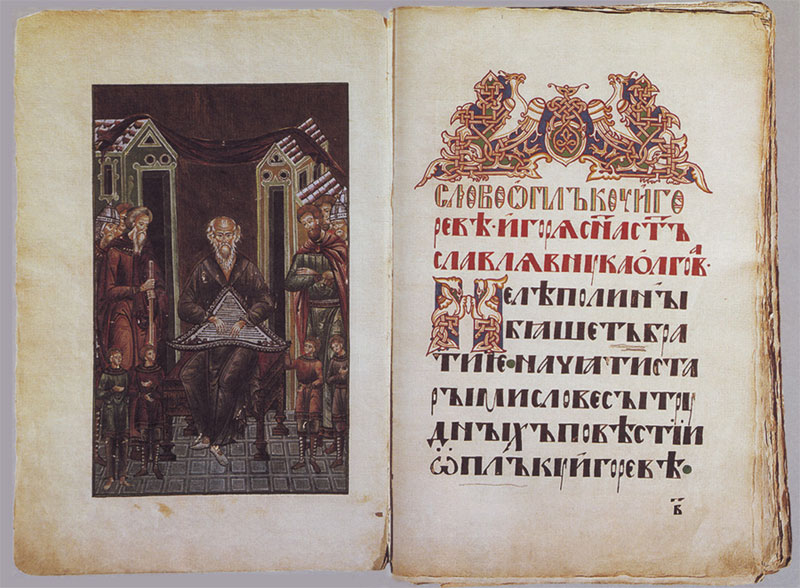 СЛОВОѠПЛЪКОУИГО
РЕВѢ·ИГОРѦСН҃АСТЪ
СЛАВЛѦВНУКАОЛГОВА·
НЕЛѢПОЛИНЫ
БꙖШЕТЪБРА
ТИѤ·НАЧꙖТИСТА
РЫМИСЛОВЕСЫТРУ
ДНЫХЪПОВѢСТІИ
ѠПЛЪКУИГОРЕВѢ·
в҃